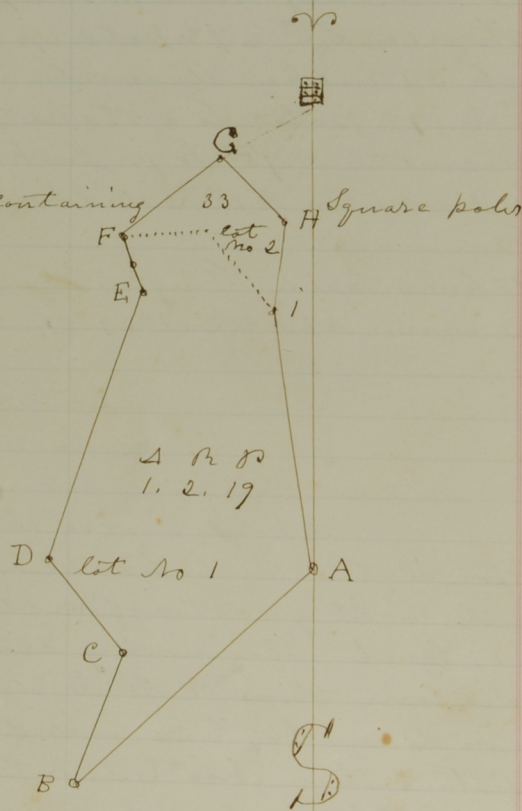 G
containing 33 Square poles
F lot
No 2
H
E
i
A R P
1. 2. 19
D lot No 1
A
C
B
S